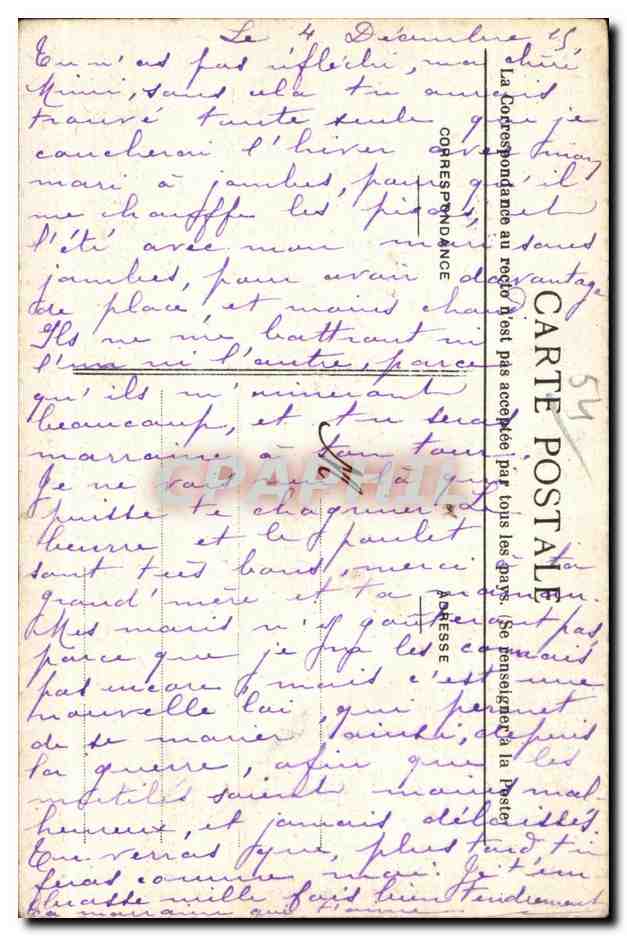 Le 4 Décembre 15
Tu n'as pas réfléchi, ma chérie
Mimi, sans cela tu aurais
trouvé toute seule que je
coucherai l'hiver avec mon
mari à jambes, pour qu'il
me chauffe les pieds, et
l'été avec mon mari sans
jambes, pour avoir davantage
de place, et moins chaud
Ils ne me battront ni
l'un ni l'autre, parce
qu'ils m'aimeront
beaucoup, et tu seras
marraine à ton tour.
Je ne vois rien là qui
puisse te chagriner. Le
beurre et le poulet
sont très bons, merci à ta
grand'mère et ta maman.
Mes maris n'y goûteront pas
parce que je ne les connais
pas encore, mais c'est une
nouvelle loi, qui permet
de se marier ainsi, depuis
la guerre, afin que les
mutilés soient moins mal-
heureux, et jamais délaissés.
Tu verras que, plus tard tu
feras comme moi. Je t'em
brasse mille fois bien tendrement
ta marraine qui t'aime
M
54
CARTE POSTALE
La Correspondance au recto n'est pas acceptée par tous les pays. (Se renseigner à la Poste
CORRESPONDANCE
ADRESSE
CPAPHIL